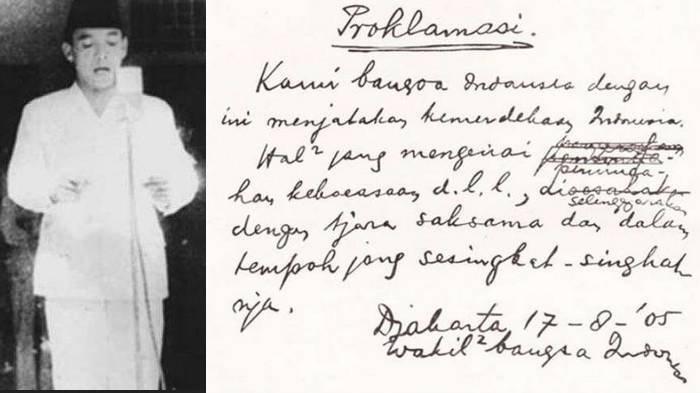 Proklamasi.
Kami bangsa Indonesia dengan
ini menjatakan kemerdekaan Indonesia.
Hal² jang mengenai
pemindah-
han keboeasaan d.l.l.,
selenggarakan
dengan tjara saksama dan dalam
tempoh jang sesingkat-singkat
nja.
Djakarta 17-8-'05
Wakil² bangsa Indonesia